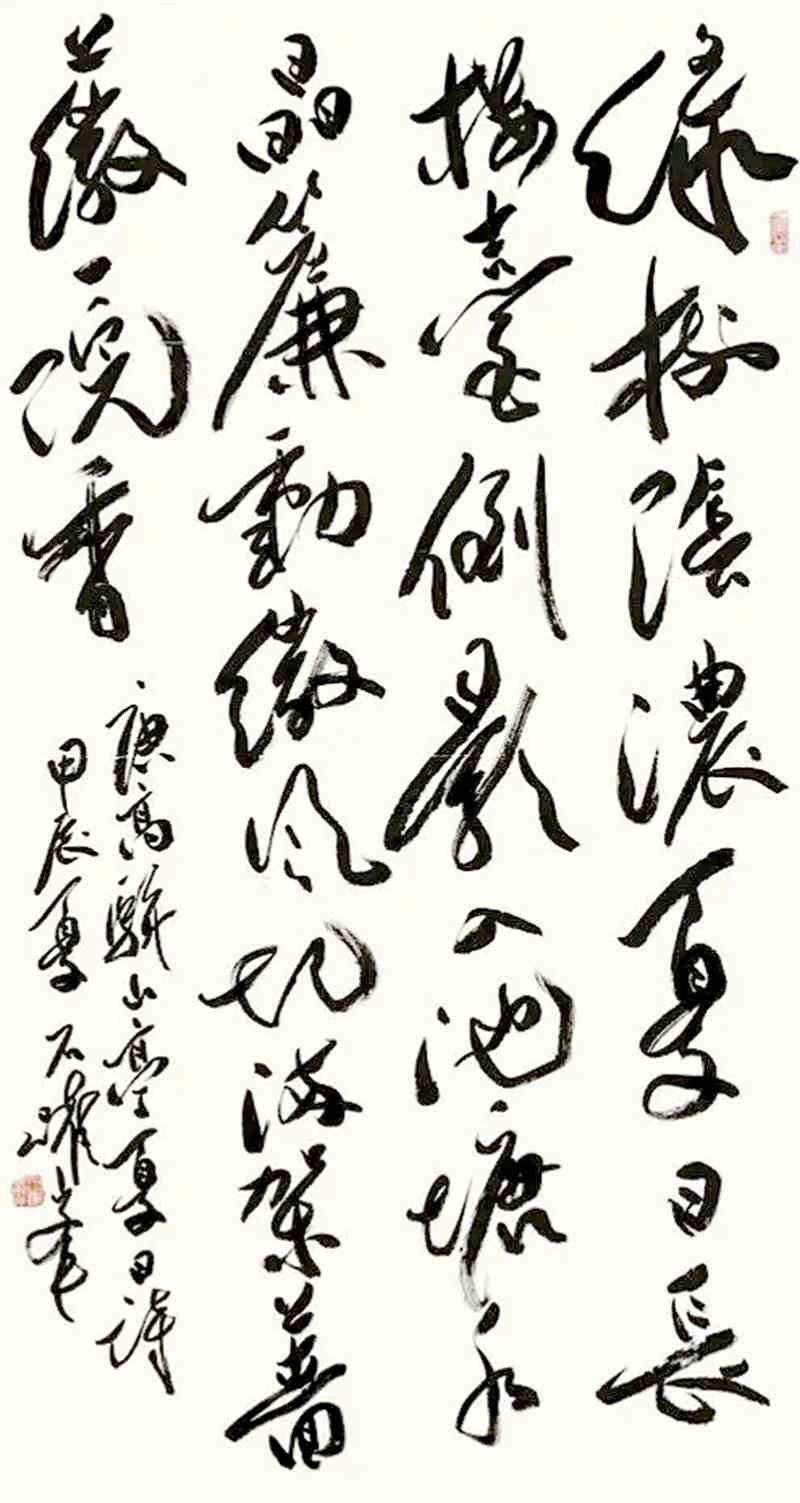 綠樹陰濃夏日長
樓臺倒影入池塘水
晶簾動微風起滿架薔
薇一院香
唐高駢山亭夏日詩
甲辰夏 石躍峯